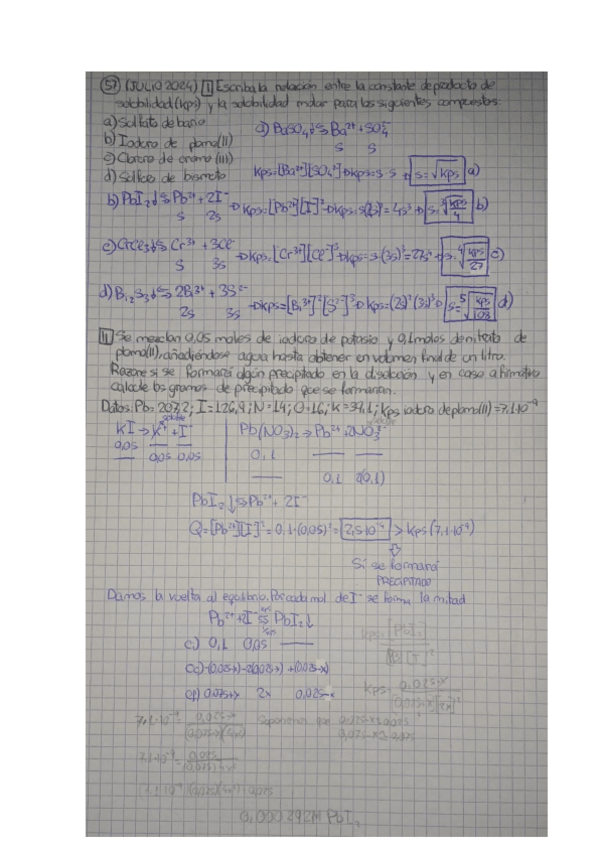 57 (JULIO 2024) I Escriba la relación entre la constante de producto de
solubilidad (kps) y la solubilidad molar para los siguientes compuestos:
a) Sulfato de bario
b) Ioduro de plomo (II)
c) Cloruro de cromo (III)
d) Sulfuro de bismuto
a) BaSO4↓⇆Ba²⁺+SO4²⁻
s s
kps=[Ba²⁺][SO4²⁻]→kps=s·s s=√kps a)
b) PbI2↓⇆Pb²⁺+2I⁻
s 2s
→kps=[Pb²⁺][I⁻]²→kps=s(2s)²=4s³→ s=∛kps/4 b)
c) CrCl3↓⇆Cr³⁺+3Cl⁻
s 3s
→kps=[Cr³⁺][Cl⁻]³→kps=s·(3s)³=27s⁴→ s=⁴√kps/27 c)
d) Bi2S3↓⇆2Bi³⁺+3S²⁻
2s 3s
→kps=[Bi³⁺]²[S²⁻]³→kps=(2s)²(3s)³→ s=⁵√kps/108 d)
II Se mezclan 0,05 moles de ioduro de potasio y 0,1 moles de nitrato de
plomo (II), añadiéndose agua hasta obtener en volumen final de un litro.
Razone si se formará algún precipitado en la disolución y en caso afirmativo
calcule los gramos de precipitado que se formarán.
Datos: Pb=207,2; I=126,9; N=14; O=16; K=39,1; kps ioduro de plomo (II)=7,1·10⁻⁹
KI→K⁺+I⁻
0,05
0,05 0,05
Pb(NO3)2→Pb²⁺+2NO3⁻
0,1
0,1 2(0,1)
PbI2↓⇆Pb²⁺+2I⁻
Q=[Pb²⁺][I⁻]²=0,1·(0,05)²=2,5·10⁻⁴>kps(7,1·10⁻⁹)
Sí se formará
PRECIPITADO
Damos la vuelta al equilibrio. Por cada mol de I⁻ se forma la mitad
Pb²⁺+2I⁻⇆PbI2↓
ci) 0,1 0,05
cc) -(0,025-x) -2(0,025-x) +(0,025-x)
cf) 0,075+x 2x 0,025-x
kps=
Suponemos que
0,000292M PbI2